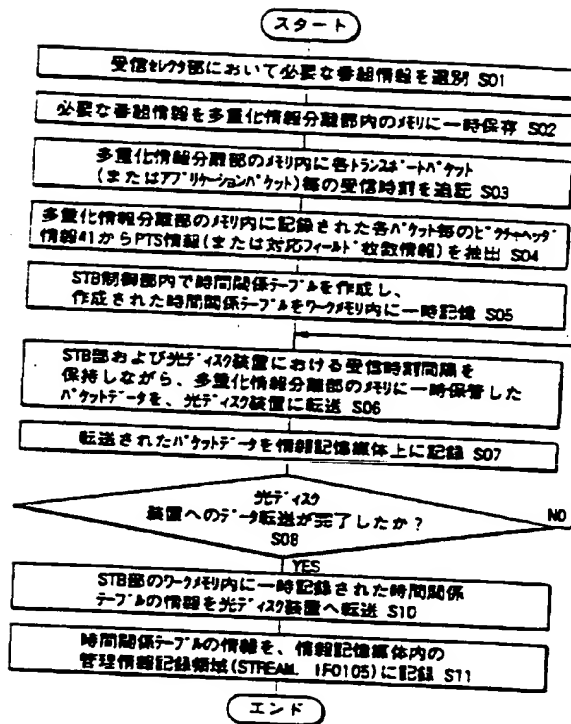 スタート
受信セレクタ部において必要な番組情報を選別 S01
必要な番組情報を多重化情報分離部内のメモリに一時保存 S02
多重化情報分離部のメモリ内に各トランスポートパケット
(またはアプリケーションパケット)毎の受信時刻を追記 S03
多重化情報分離部のメモリ内に記録された各パケット部のピクチャヘッダ
情報41からPTS情報(または対応フィールド枚数情報)を抽出 S04
STB制御部内で時間関係テーブルを作成し、
作成された時間関係テーブルをワークメモリ内に一時記憶 S05
STB部および光ディスク装置における受信時刻間隔を
保持しながら、多重化情報分離部のメモリに一時保管した
パケットデータを、光ディスク装置に転送 S06
転送されたパケットデータを情報記憶媒体上に記録 S07
光ディスク
装置へのデータ転送が完了したか?
S08
NO
YES
STB部のワークメモリ内に一時記録された時間関係
テーブルの情報を光ディスク装置へ転送 S10
時間関係テーブルの情報を、情報記憶媒体内の
管理情報記録領域(STREAM. IFO105)に記録 S11
エンド